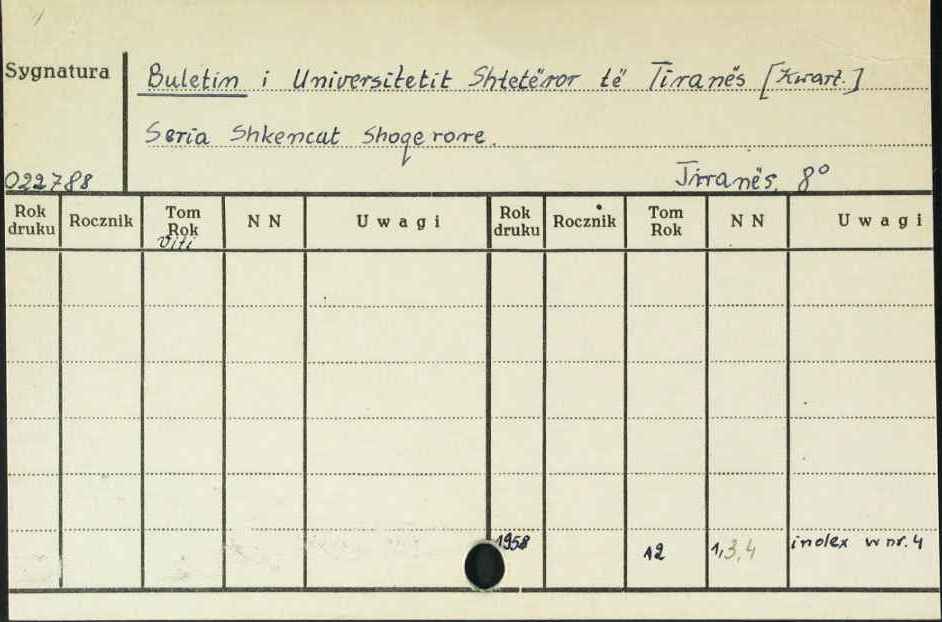 Sygnatura
Buletin i Universitetit Shtetëror të Tiranës [Kwart.]
Seria Shkencat Shoqerore.
022788
Tirranës, 8º
Rok druku Rocznik Tom Rok N N Uwagi Rok druku Rocznik Tom Rok N N Uwagi
Viti
1958 12 1,3,4 index w nr. 4